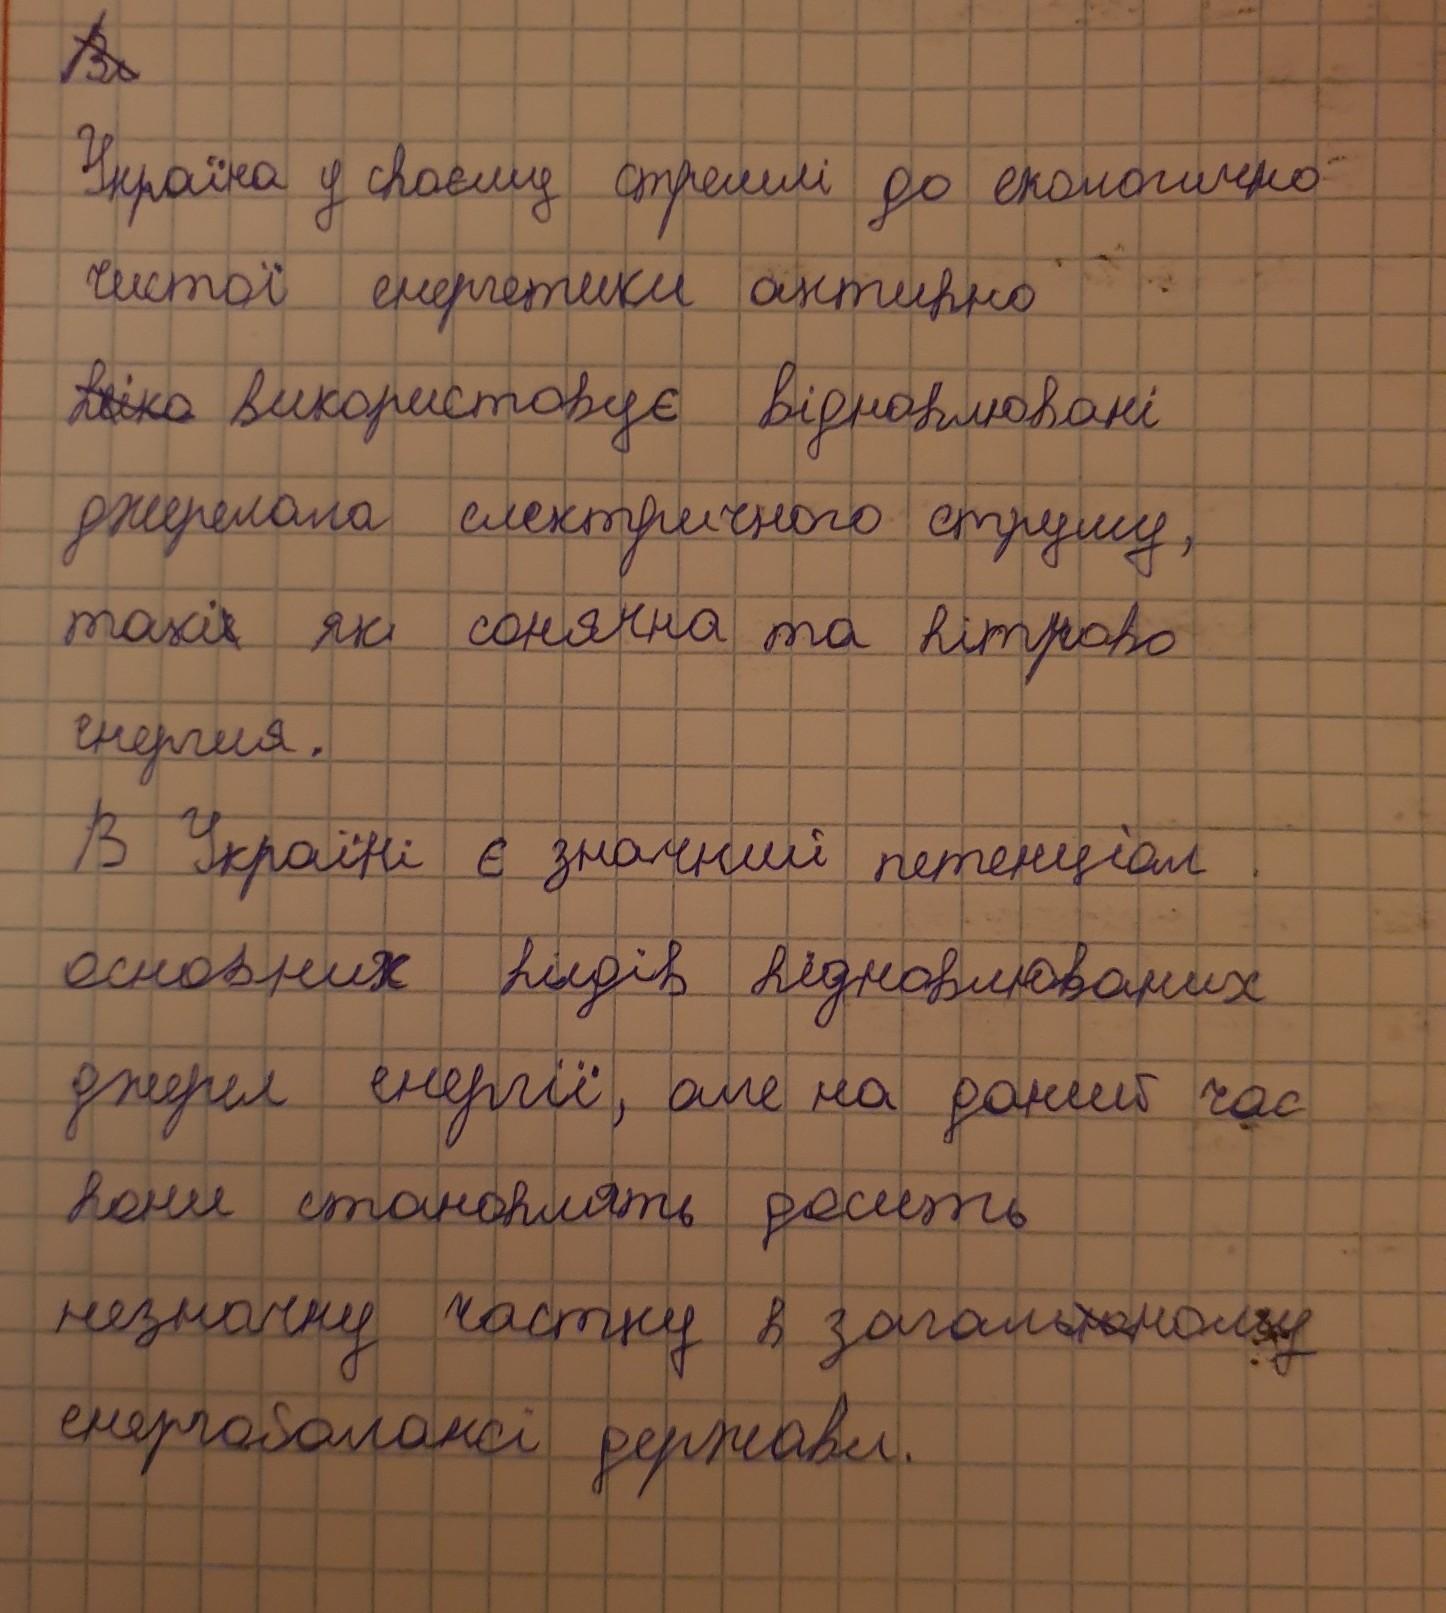 Україна у своєму стремлі до екологично
чистої енергетики активно
використовує відновлювані
джерелала електричного струму,
такі як сонячна та вітрово
енергия.
В Україні є значний петенціал
основних видів відновлюваних
джерел енергії, але на даний час
вони становлять досить
незначну частку в загальному
енергобалансі держави.